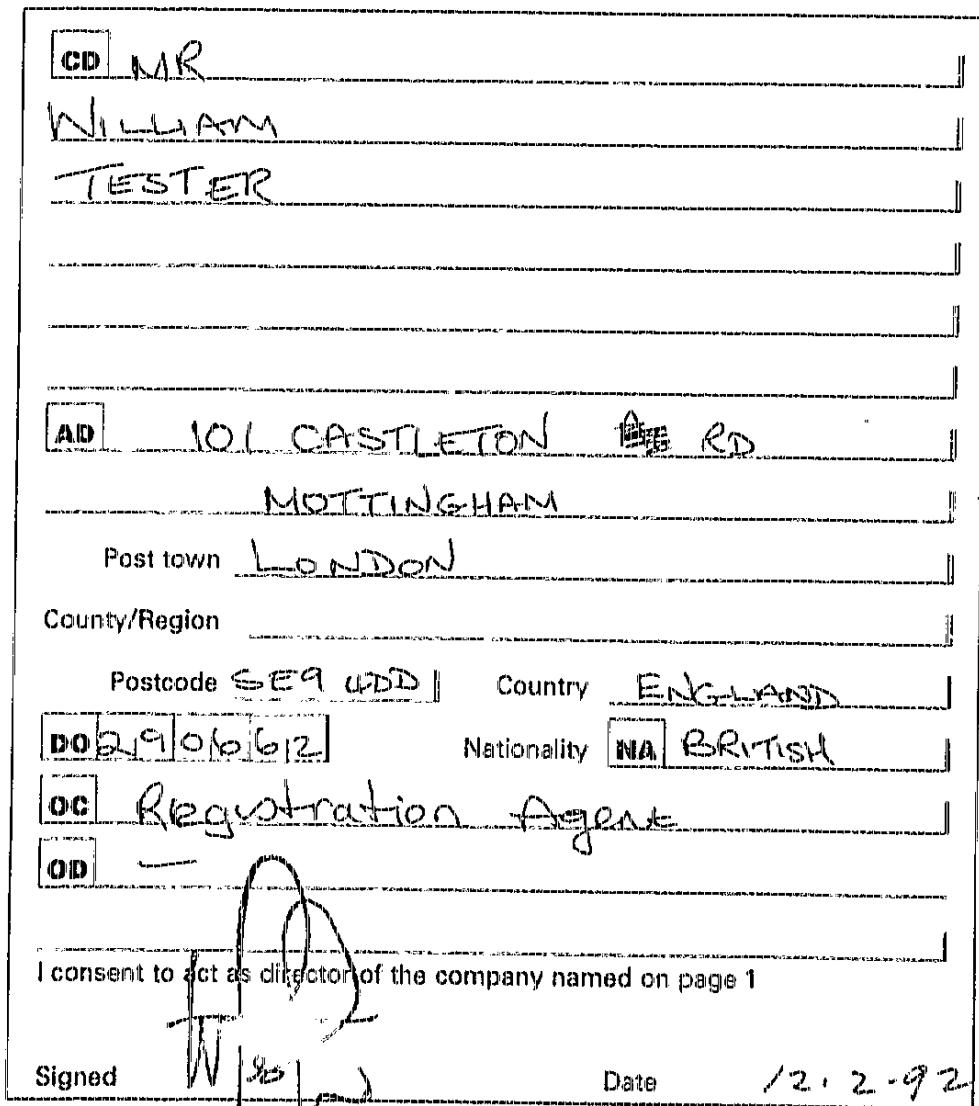 CD MR
WILLIAM
TESTER
AD 101 CASTLETON RD
MOTTINGHAM
Post town LONDON
County/Region
Postcode SE9 4DD Country ENGLAND
DO 290662 Nationality NA BRITISH
OC Registration Agent
OD —
I consent to act as director of the company named on page 1
Signed Date 12.2.92